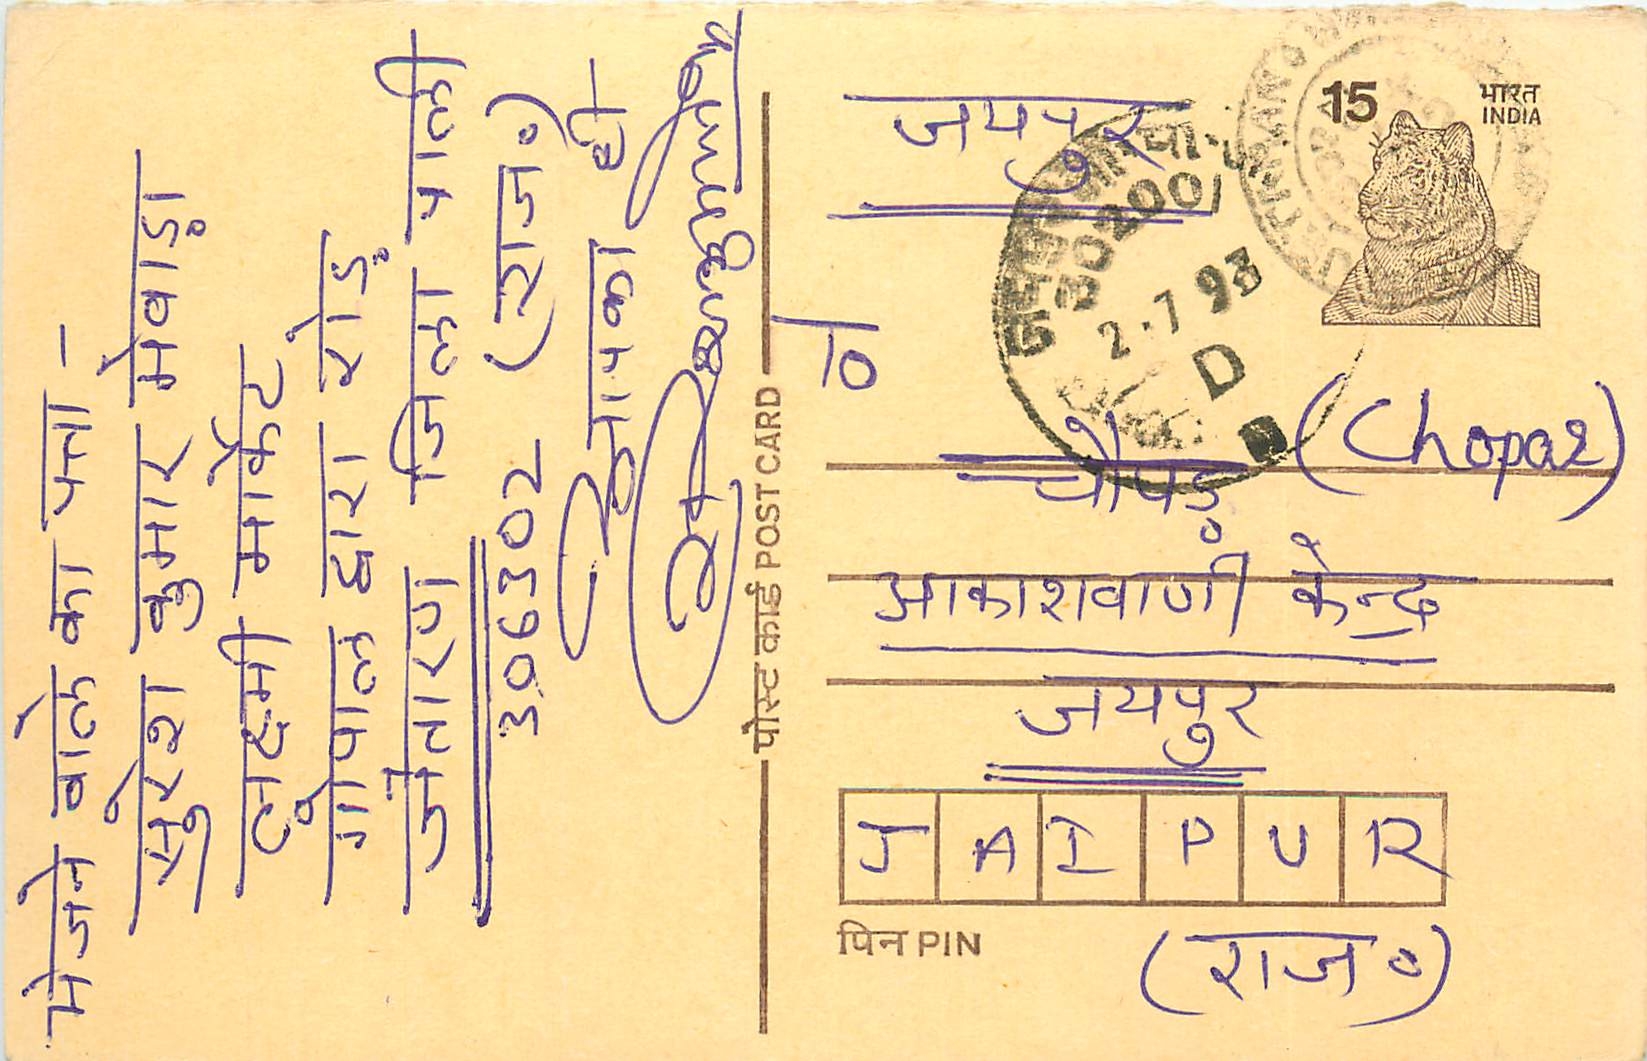 भेजने वाले का पता -
सुरेश कुमार मेवाड़ा
लक्ष्मी मार्केट
गोपाल द्वारा रोड़
जैतारण जिला पाली
306302 (राज०)
आपका ही
पोस्ट कार्ड POST CARD
15
भारत
INDIA
जयपुर
302001
2.7 93
D
चौपड़ (Chopar)
आकाशवाणी केन्द्र
जयपुर
J A I P U R
पिन PIN
(राज०)